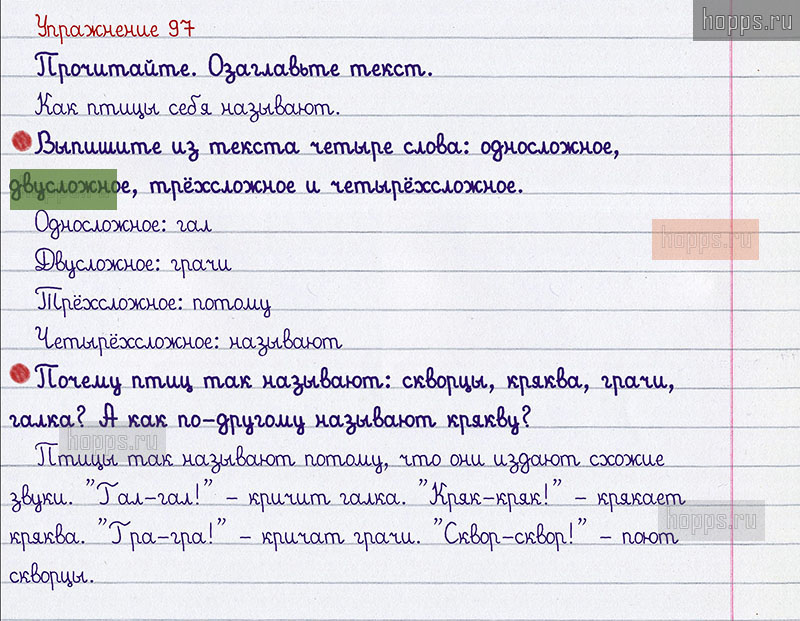 hopps.ru
Упражнение 97
Прочитайте. Озаглавьте текст.
Как птицы себя называют.
Выпишите из текста четыре слова: односложное,
двусложное, трёхсложное и четырёхсложное.
Односложное: гал
hopps.ru
Двусложное: грачи
Трёхсложное: потому
Четырёхсложное: называют
Почему птиц так называют: скворцы, кряква, грачи,
галка? А как по-другому называют крякву?
hopps.ru
Птицы так называют потому, что они издают схожие
звуки. "Гал-гал!" – кричит галка. "Кряк-кряк!" – крякает
hopps.ru
кряква. "Гра-гра!" – кричат грачи. "Сквор-сквор!" – поют
скворцы.